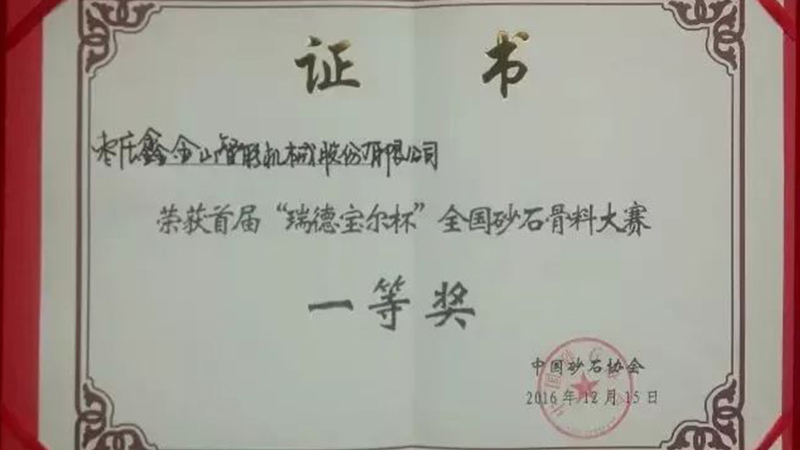 证书
枣庄鑫金山智能机械股份有限公司
荣获首届“瑞德宝尔杯”全国砂石骨料大赛
一等奖
中国砂石协会
2016年12月15日